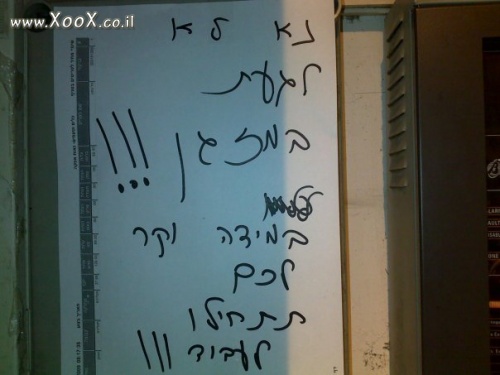 www.XooX.co.il
נא לא
לגעת
במזגן !!!
במידה וקר
לכם
תתחילו
לעבוד !!!